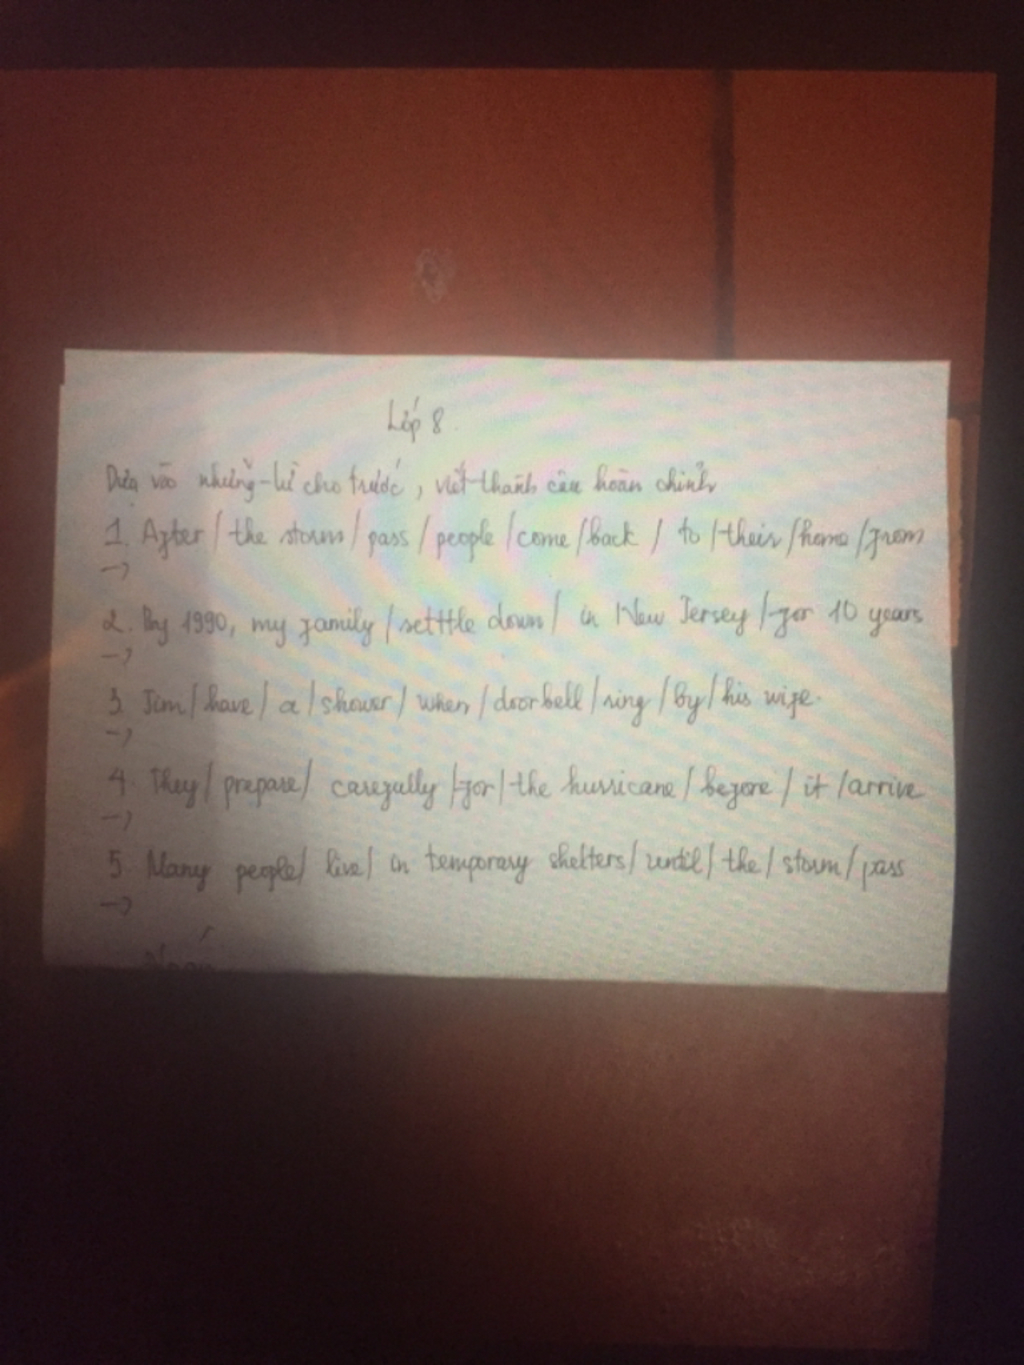 Lớp 8.
Dựa vào những từ cho trước, viết thành câu hoàn chỉnh
1. After / the storm / pass / people / come / back / to / their / home / from
→
2. By 1990, my family / setttle down / in New Jersey / for 10 years
→
3. Jim / have / a / shower / when / doorbell / ring / by / his wife.
→
4. They / prepare / carefully / for / the hurricane / before / it / arrive
→
5. Many people / live / in temporary shelters / until / the / storm / pass
→